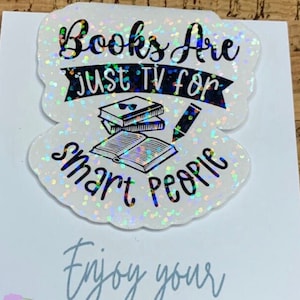 Books Are
Just TV for
Smart People
Enjoy your